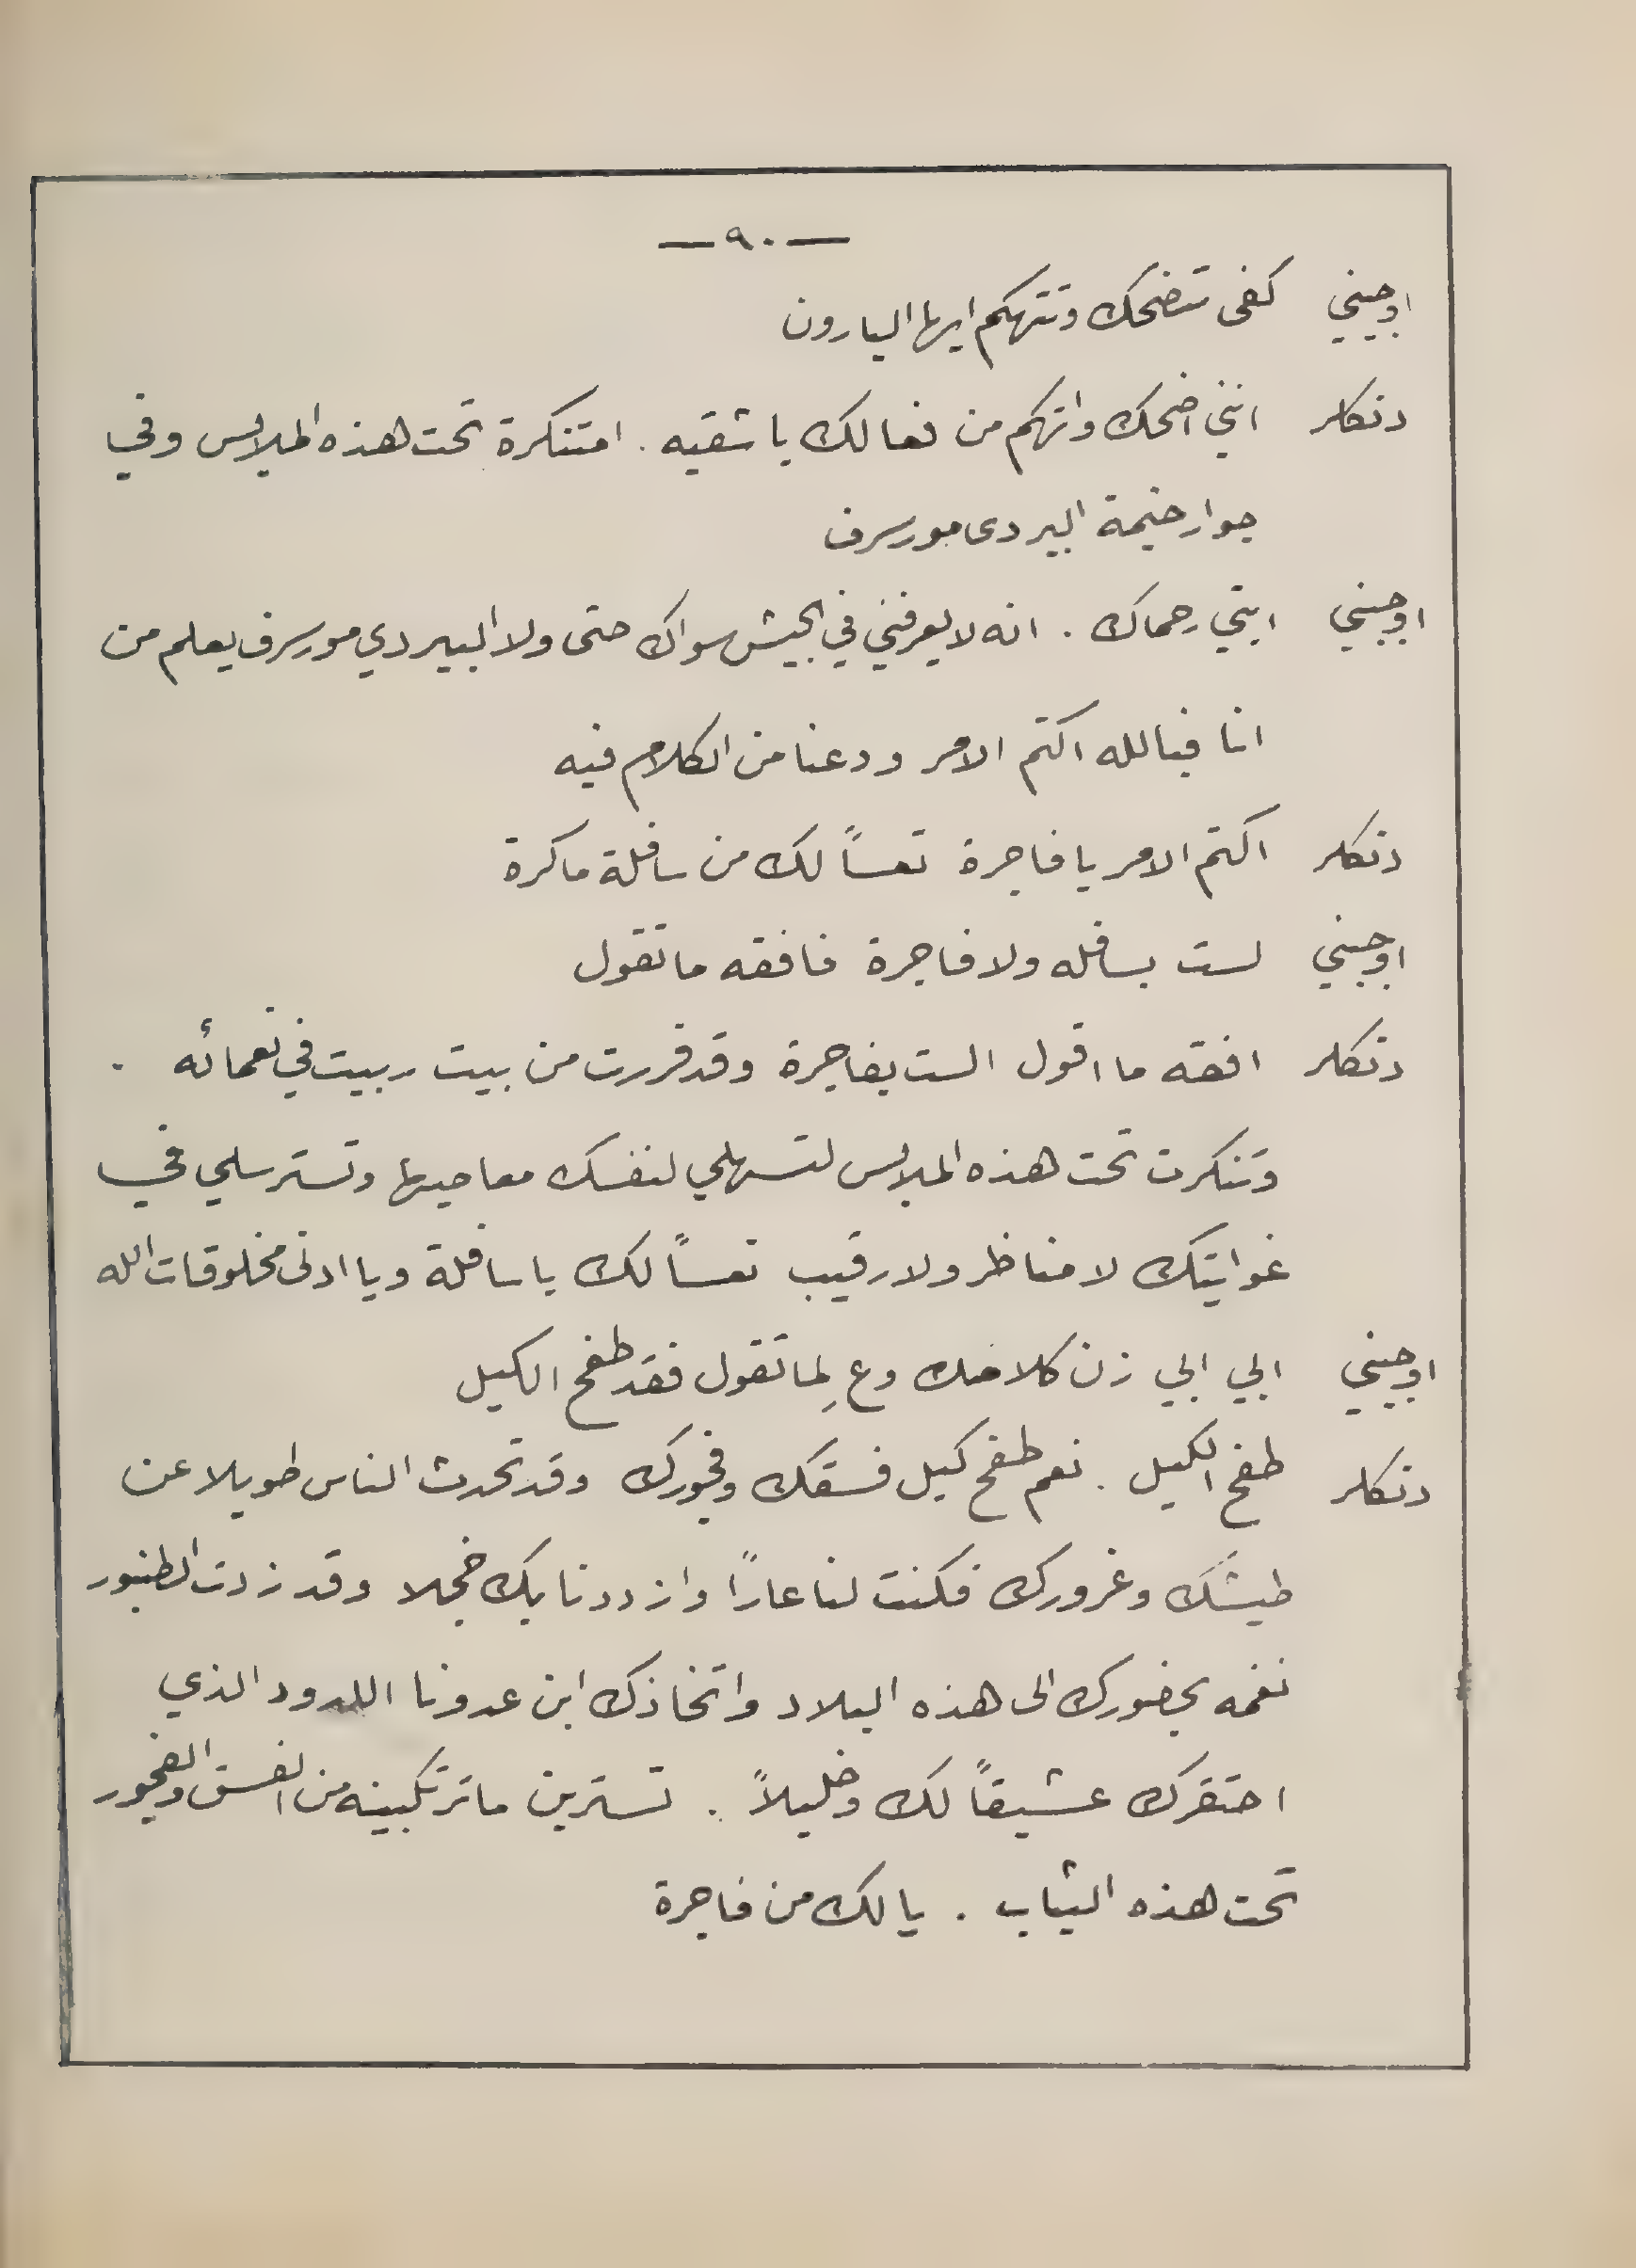 — ٩٠ —
اوجيني كفى تتضحك وتتهكم ايها البارون
دنكلر انني اضحك واتهكم من فعالك يا شقيه . امتنكرة تحت هذه الملابس وفي
جوار خيمة البير دى مورسرف
اوجيني ابتي رحماك . انه لا يعرفني في الجيش سواك حتى ولا البير دي مورسرف يعلم من
انا فبالله اكتم الامر ودعنا من الكلام فيه
دنكلر اكتم الامر يا فاجرة تعساً لك من سافلة ماكرة
اوجيني لست بسافله ولا فاجرة فافقه ما تقول
دنكلر افقه ما اقول الست بفاجرة وقد فررت من بيت ربيت في نعمائه .
وتنكرت تحت هذه الملابس لتسهلي لنفسك معاصيها وتسترسلي في
غوايتك لا مناظر ولا رقيب تعساً لك يا سافلة ويا ادنى مخلوقات الله
اوجيني ابي ابي زن كلامك وعِ لما تقول فقد طفح الكيل
دنكلر طفح الكيل . نعم طفح كيل فسقك وفجورك وقد تحدث الناس طويلا عن
طيشك وغرورك فكنت لنا عارًا وازددنا بك خجلا وقد زدت الطنبور
نغمه بحضورك الى هذه البلاد واتخاذك ابن عدونا اللدود الذي
احتقرك عشيقاً لك وخليلاً . تسترين ما ترتكبينه من الفسق والفجور
تحت هذه الثياب . يا لك من فاجرة